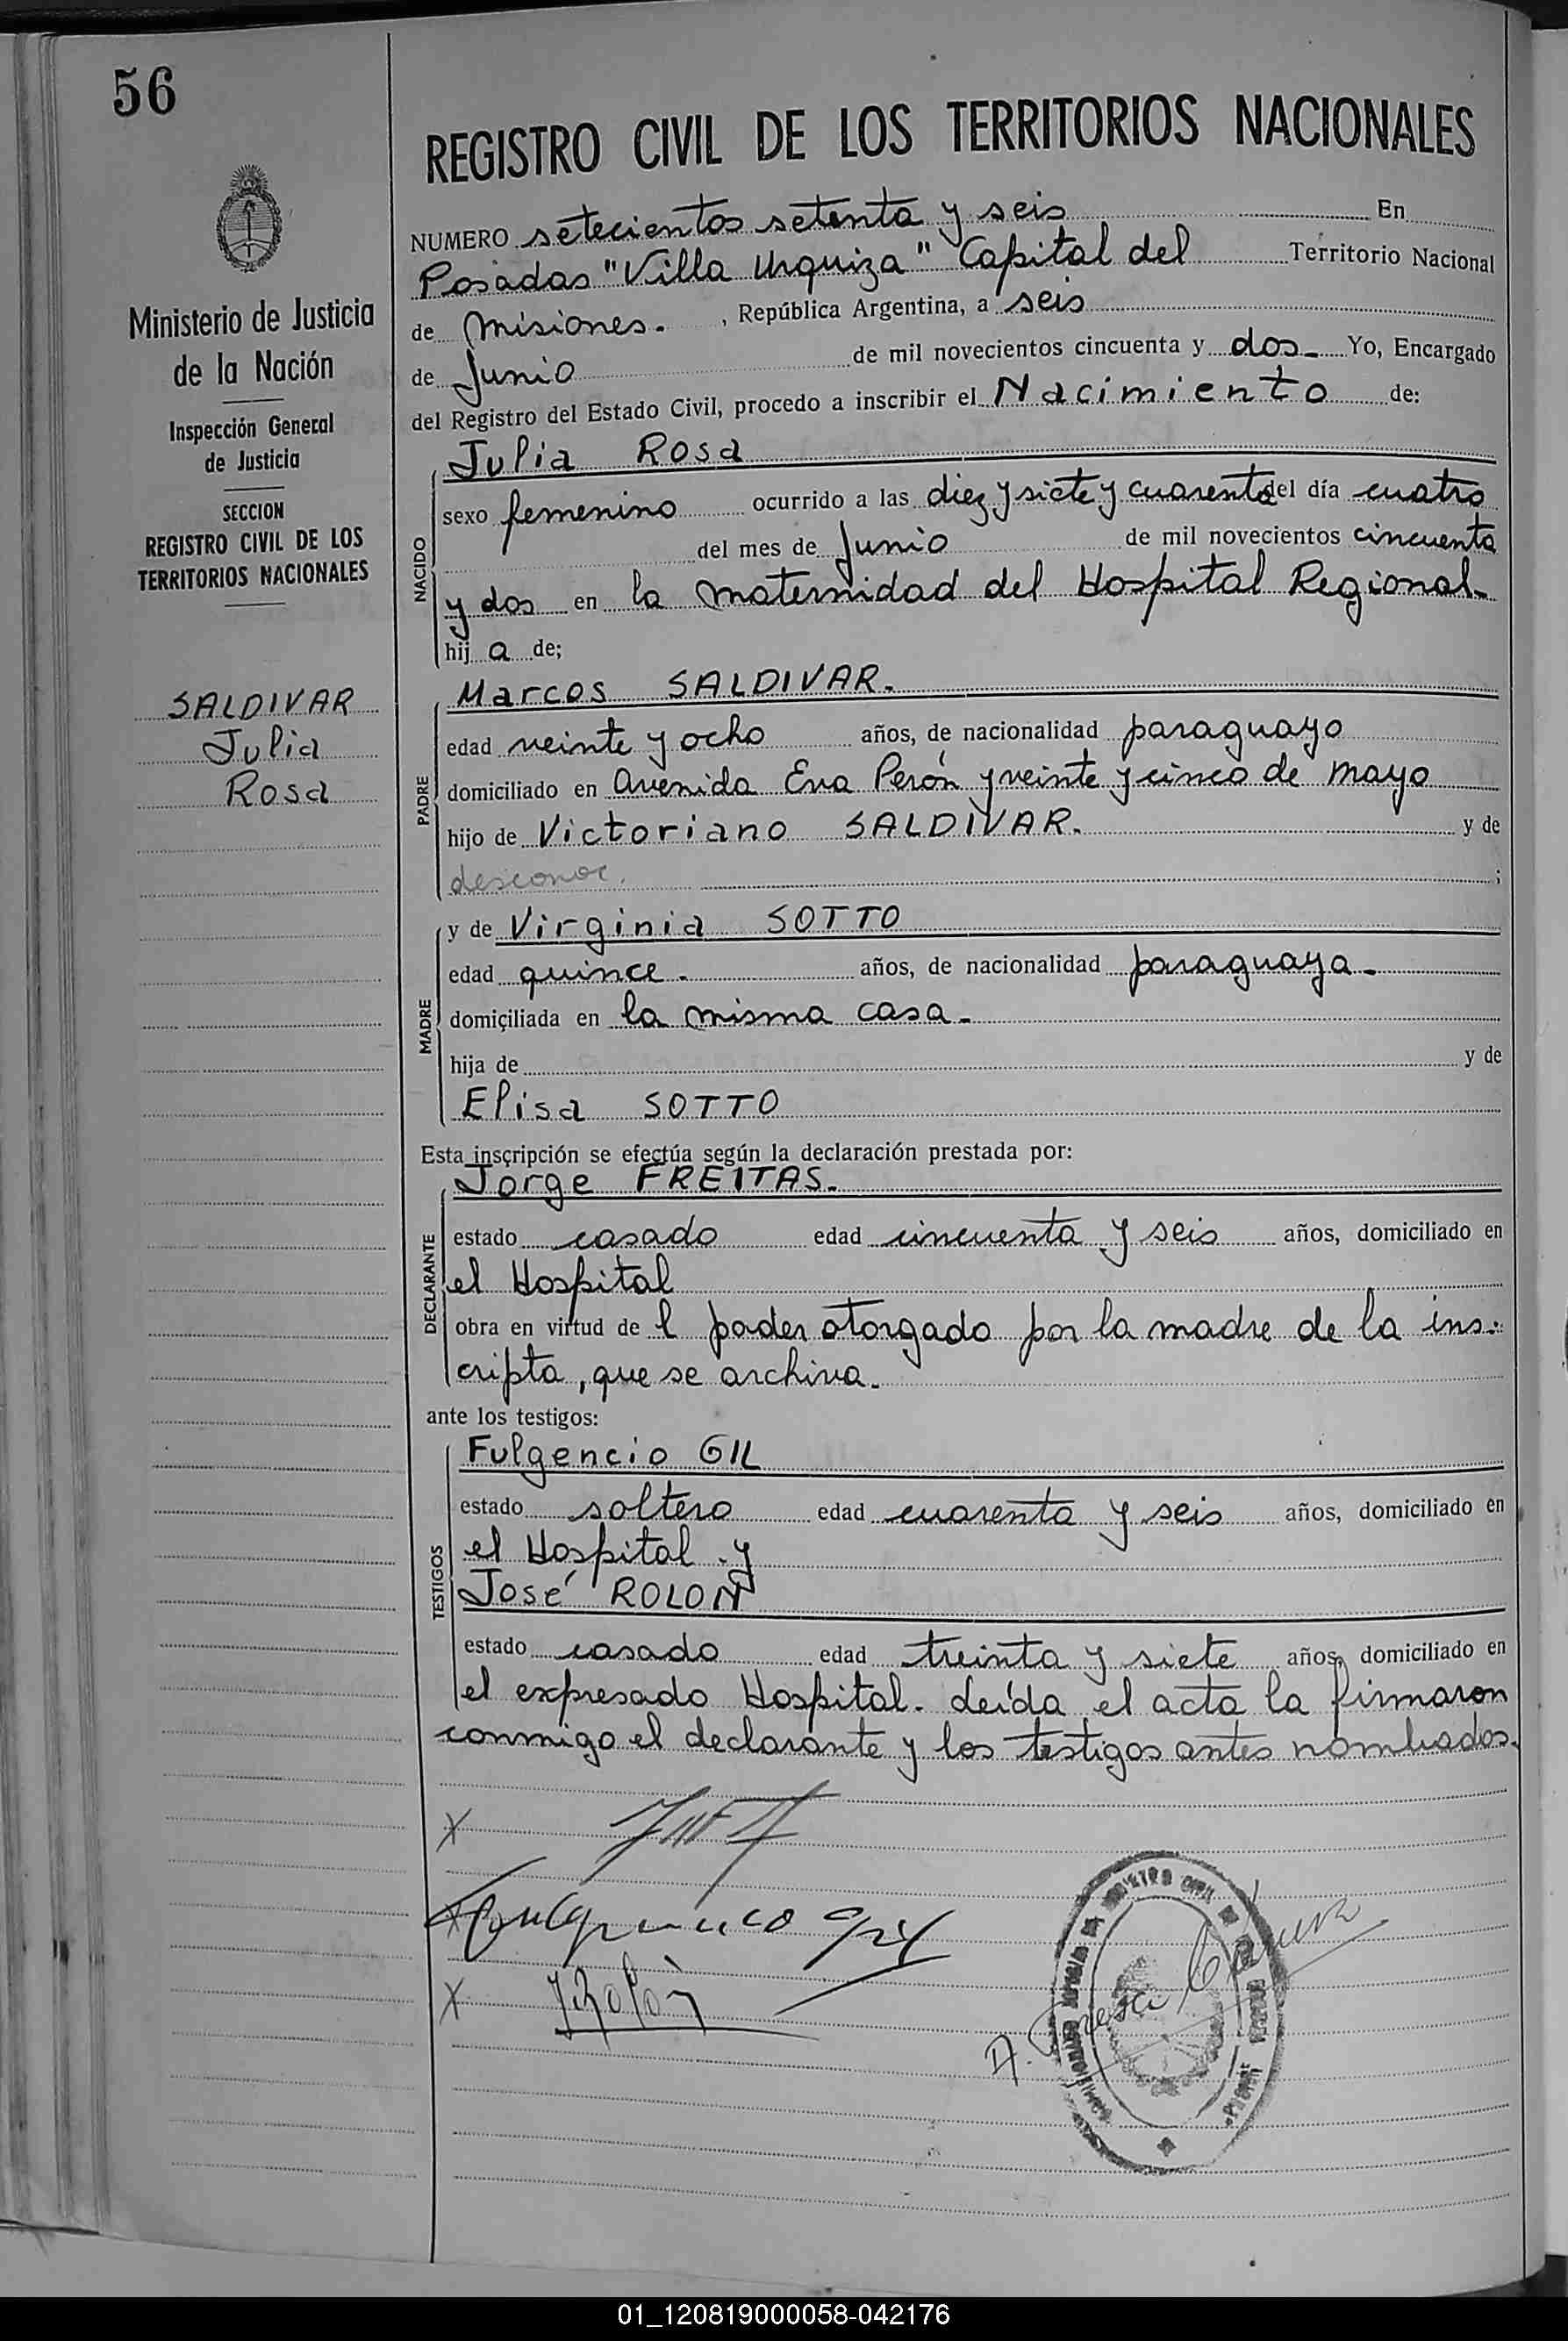 56
REGISTRO CIVIL DE LOS TERRITORIOS NACIONALES
Ministerio de Justicia
de la Nación
Inspección General
de Justicia
SECCION
REGISTRO CIVIL DE LOS
TERRITORIOS NACIONALES
SALDIVAR
Julia
Rosa
NUMERO setecientos setenta y seis En
Posadas "Villa Urquiza" Capital del Territorio Nacional
de Misiones. , República Argentina, a seis
de Junio de mil novecientos cincuenta y dos- Yo, Encargado
del Registro del Estado Civil, procedo a inscribir el Nacimiento de:
Julia Rosa
NACIDO
sexo femenino ocurrido a las diez y siete y cuarenta del día cuatro
del mes de Junio de mil novecientos cincuenta
y dos en la maternidad del Hospital Regional-
hij a de;
Marcos SALDIVAR.
PADRE
edad veinte y ocho años, de nacionalidad paraguayo
domiciliado en Avenida Eva Perón y veinte y cinco de mayo
hijo de Victoriano SALDIVAR. y de
desconoc. ;
y de Virginia SOTTO
MADRE
edad quince. años, de nacionalidad paraguaya-
domiciliada en la misma casa-
hija de y de
Elisa SOTTO
Esta inscripción se efectúa según la declaración prestada por:
Jorge FREITAS.
DECLARANTE
estado casado edad cincuenta y seis años, domiciliado en
el Hospital
obra en virtud de l poder otorgado por la madre de la ins-
cripta, que se archiva.
ante los testigos:
Fulgencio GIL
TESTIGOS
estado soltero edad cuarenta y seis años, domiciliado en
el Hospital y
José ROLON
estado casado edad treinta y siete años, domiciliado en
el expresado Hospital. Leída el acta la firmaron
conmigo el declarante y los testigos antes nombrados.
X
X Fulgencio Gil
X J Rolón
01_120819000058-042176